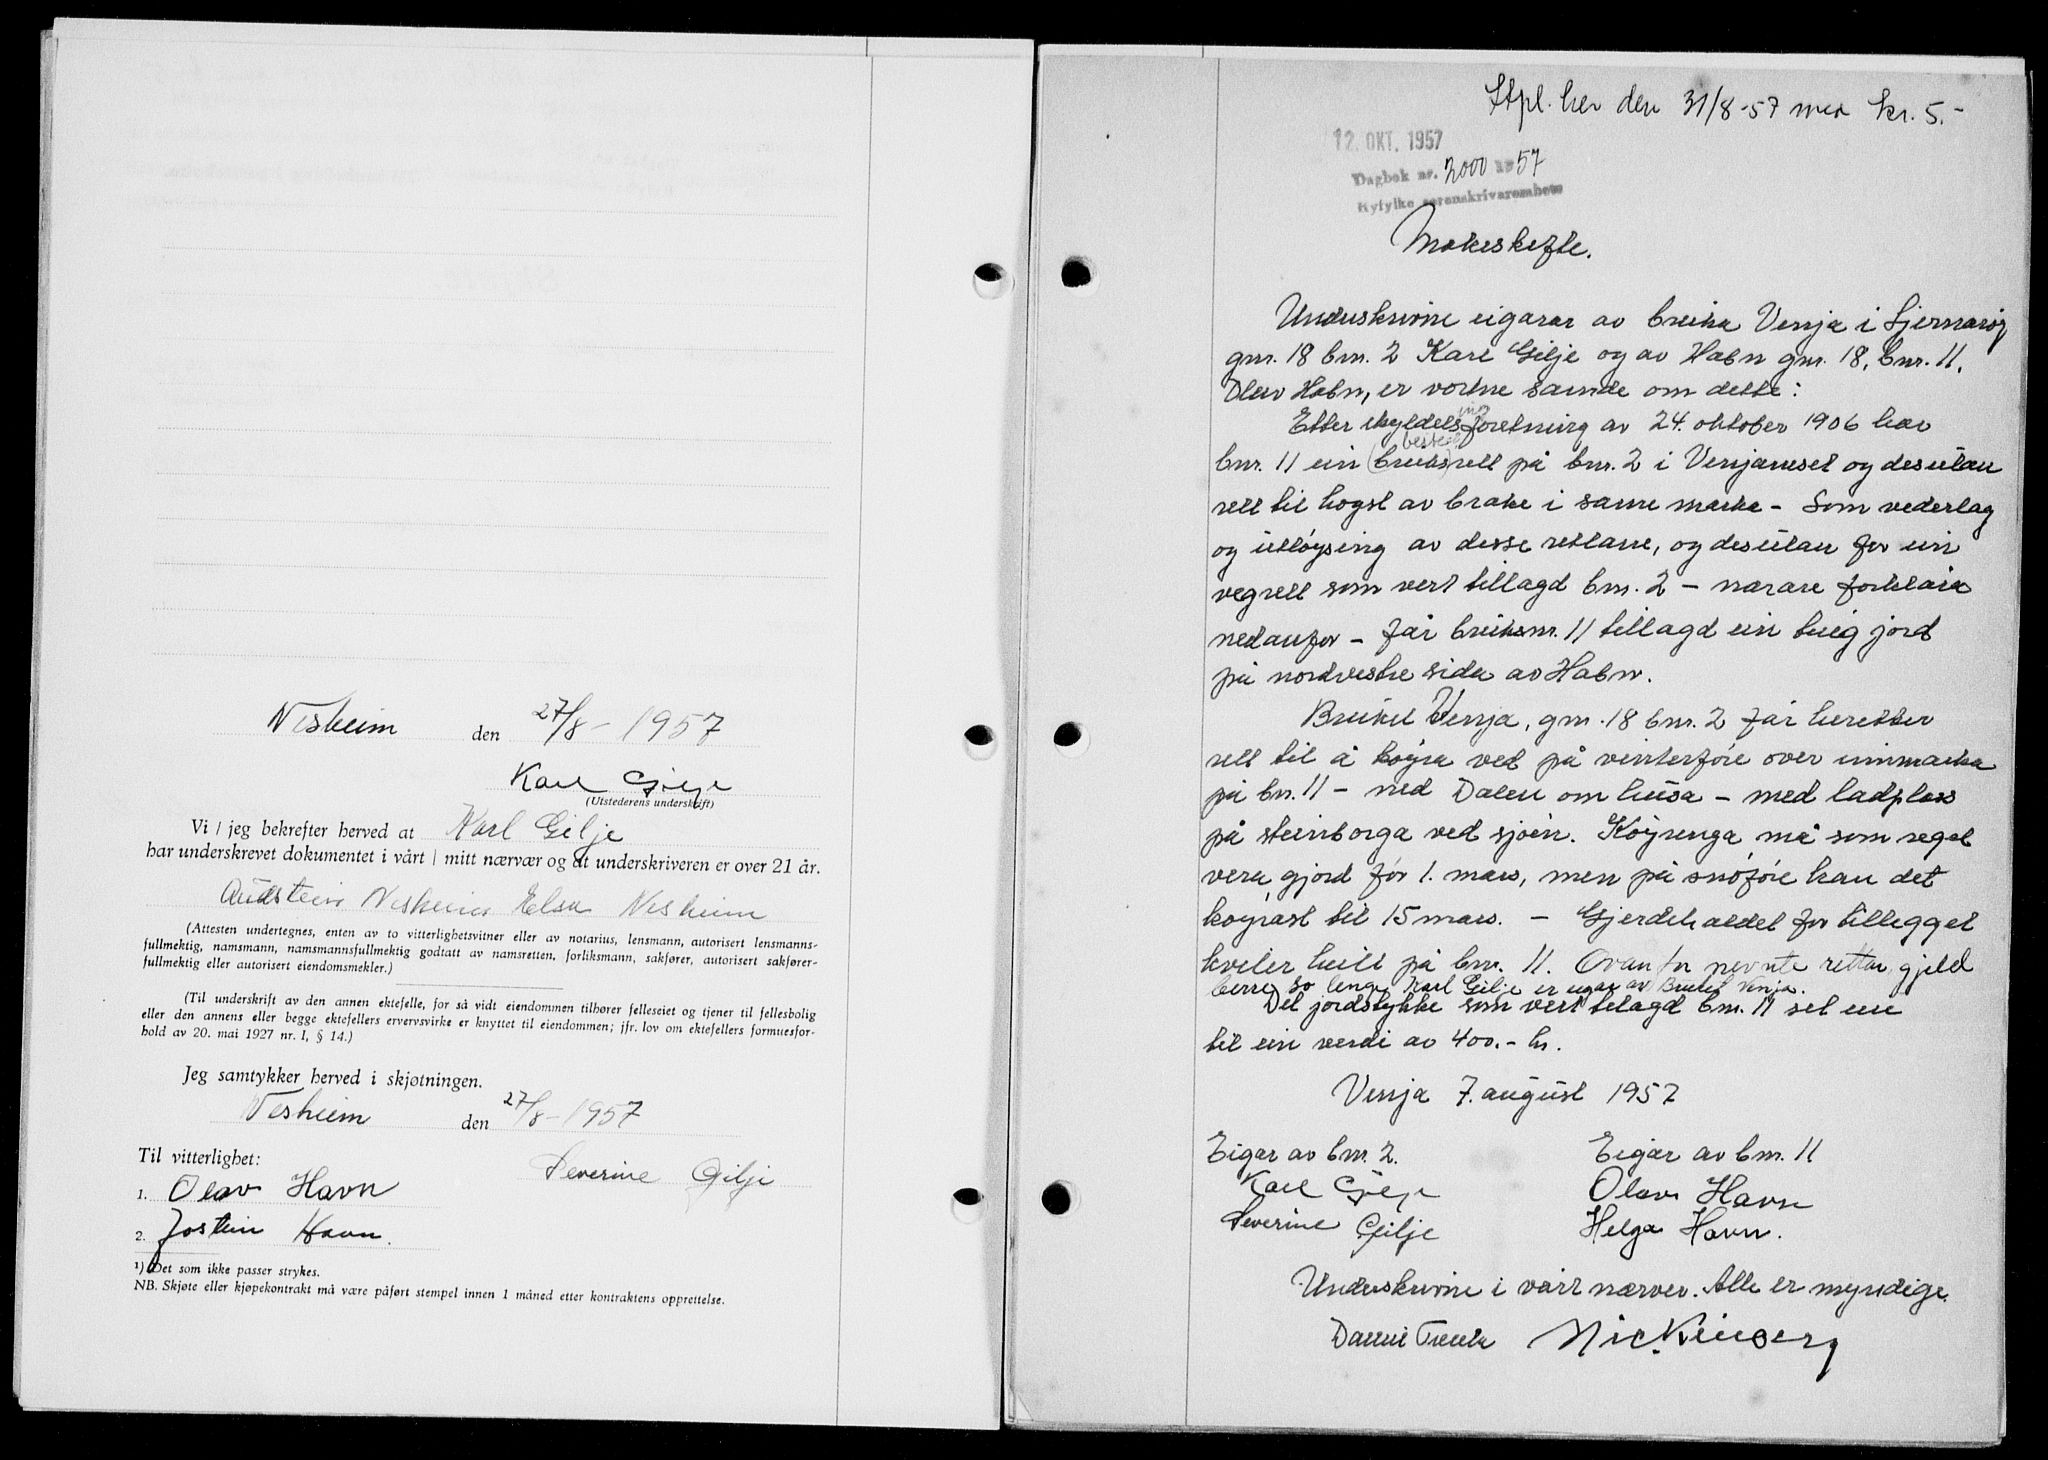 Nesheim den 27/8 - 1957
Karl Gilje
(Utstederens underskrift)
Vi / jeg bekrefter herved at Karl Gilje
har underskrevet dokumentet i vårt / mitt nærvær og at underskriveren er over 21 år.
Audstein Nesheim Elsa Nesheim
(Attesten undertegnes, enten av to vitterlighetsvitner eller av notarius, lensmann, autorisert lensmanns-
fullmektig, namsmann, namsmannsfullmektig godtatt av namsretten, forliksmann, sakfører, autorisert sakfører-
fullmektig eller autorisert eiendomsmekler.)
(Til underskrift av den annen ektefelle, for så vidt eiendommen tilhører felleseiet og tjener til fellesbolig
eller den annens eller begge ektefellers ervervsvirke er knyttet til eiendommen; jfr. lov om ektefellers formuesfor-
hold av 20. mai 1927 nr. 1, § 14.)
Jeg samtykker herved i skjøtningen.
Nesheim den 27/8 - 1957
Til vitterlighet:
Severine Gilje
1. Olav Havn
2. Jostein Havn.
¹) Det som ikke passer strykes.
NB. Skjøte eller kjøpekontrakt må være påført stempel innen 1 måned etter kontraktens opprettelse.
Stpl. her den 31/8-57 med kr. 5.-
12. OKT. 1957
Dagbok nr. 2000 19 57
Ryfylke sorenskrivarembete
Makeskifte.
Underskrivne eigarar av bruka Venja i Sjernarøy
gnr. 18 bnr. 2 Karl Gilje og av Habn gnr. 18, bnr. 11,
Olav Habn, er vortne samde om dette:
ing
Etter skyldelsforetning av 24. oktober 1906 har
beite
bnr. 11 ein (bruks)rett på bnr. 2 i Venjaneset og desutan
rett til hogst av brake i same marka - Som vederlag
og utløysing av desse rettane, og desutan for ein
vegrett som vert tillagd bnr. 2 - nærare forklåra
nedanfor - får bruksnr. 11 tillagd ein teig jord
på nordvestre sida av Habn.
Bruket Venja, gnr. 18 bnr. 2 får heretter
rett til å køyra ved på vinterføre over innmarka
på bnr. 11 - ned Dalen om husa - med ladplass
på steinborga ved sjøen. Køyrenga må som regel
vera gjord før 1. mars, men på snøføre kan det
køyrast til 15 mars. - Gjerdehaldet for tillegget
kviler heilt på bnr. 11. Ovanfor nevnte rettar gjeld
berre so lenge Karl Gilje er eigar av Bruket Venja.
Det jordstykke som vert tilagd bnr. 11 set me
til ein verdi av 400.- kr.
Venja 7. august 1957
Eigar av bnr. 2. Eigar av bnr. 11
Karl Gilje Olav Havn
Severine Gilje Helga Havn.
Underskrivne i vårt nærver. Alle er myndige.